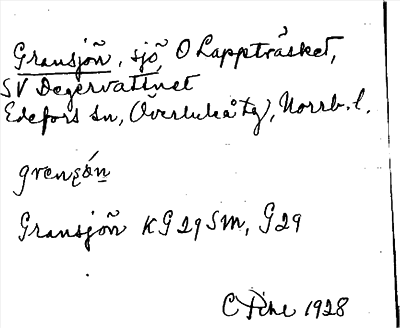 Gransjön, sjö, O Lappträsket,
SV Degervattnet
Edefors sn, Överluleå tg, Norrb. l.
Gransjön KG29SM, G29
1928